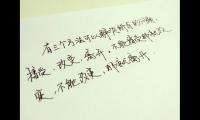 有三个方法可以解决所有的问题,
接受,改变,离开。不能接受的就改
变,不能改变,那就离开。